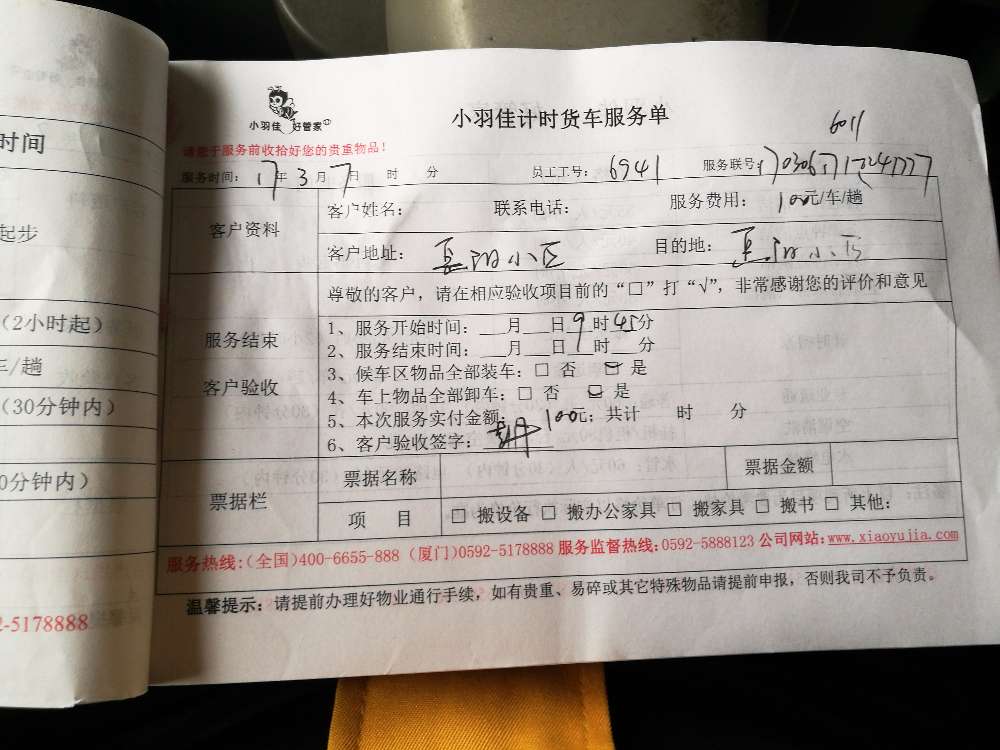 时间
起步
(2小时起)
车/趟
(30分钟内)
0分钟内)
2-5178888
小羽佳 好管家
小羽佳计时货车服务单
6011
请您于服务前收拾好您的贵重物品!
服务时间: 17年 3月 7日 时 分 员工工号: 6941 服务联号:
客户资料
客户姓名: 联系电话: 服务费用: 100元/车/趟
客户地址: 小区 目的地: 小区
尊敬的客户，请在相应验收项目前的“□”打“√”，非常感谢您的评价和意见
服务结束
客户验收
1、服务开始时间: ___月___日 9 时 45 分
2、服务结束时间: ___月___日___时___分
3、候车区物品全部装车: □ 否 □ 是
4、车上物品全部卸车: □ 否 □ 是
5、本次服务实付金额: 100元; 共计 时 分
6、客户验收签字:
票据栏
票据名称 票据金额
项 目 □ 搬设备 □ 搬办公家具 □ 搬家具 □ 搬书 □ 其他:
服务热线:(全国)400-6655-888 (厦门)0592-5178888 服务监督热线:0592-5888123 公司网站:www.xiaoyujia.com
温馨提示: 请提前办理好物业通行手续，如有贵重、易碎或其它特殊物品请提前申报，否则我司不予负责。